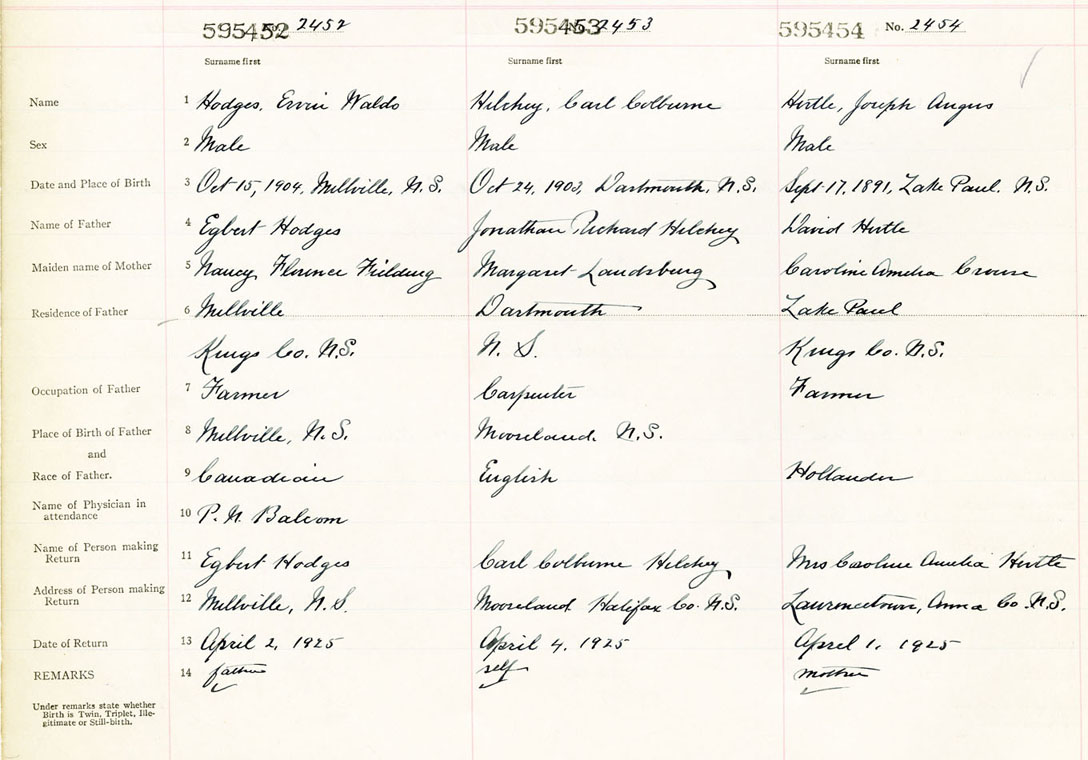 595452 No. 2452 595453 No. 2453 595454 No. 2454
Surname first Surname first Surname first
Name 1 Hodges, Ervin Waldo Hilchey, Carl Colburne Hirtle, Joseph Angus
Sex 2 Male Male Male
Date and Place of Birth 3 Oct 15, 1904, Millville, N.S. Oct 24, 1903, Dartmouth, N.S. Sept 17, 1891, Lake Paul. N.S.
Name of Father 4 Egbert Hodges Jonathan Richard Hilchey David Hirtle
Maiden name of Mother 5 Nancy Florence Fielding Margaret Landsburg Caroline Amelia Crouse
Residence of Father 6 Millville Dartmouth Lake Paul
Kings Co. N.S. N. S. Kings Co. N.S.
Occupation of Father 7 Farmer Carpenter Farmer
Place of Birth of Father 8 Millville, N.S. Mooseland. N.S.
and
Race of Father. 9 Canadian English Hollander
Name of Physician in
attendance 10 P. N. Balcom
Name of Person making
Return 11 Egbert Hodges Carl Colburne Hilchey Mrs Caroline Amelia Hirtle
Address of Person making
Return 12 Millville, N.S. Mooseland Halifax Co. N.S. Lawrencetown, Anna Co. N.S.
Date of Return 13 April 2, 1925 April 4, 1925 April 1, 1925
REMARKS 14 father self mother
Under remarks state whether
Birth is Twin, Triplet, Ille-
gitimate or Still-birth.